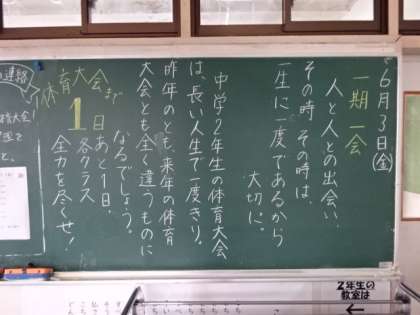 6月3日(金)
一期一会
人と人との出会い、
その時その時は、
一生に一度であるから
大切に。
中学2年生の体育大会
は、長い人生で一度きり。
昨年のとも、来年の体育
大会とも全く違うものに
なるでしょう。
あと1日、
各クラス
全力を尽くせ！
体育大会まで
1日
連絡
2年生の
教室は